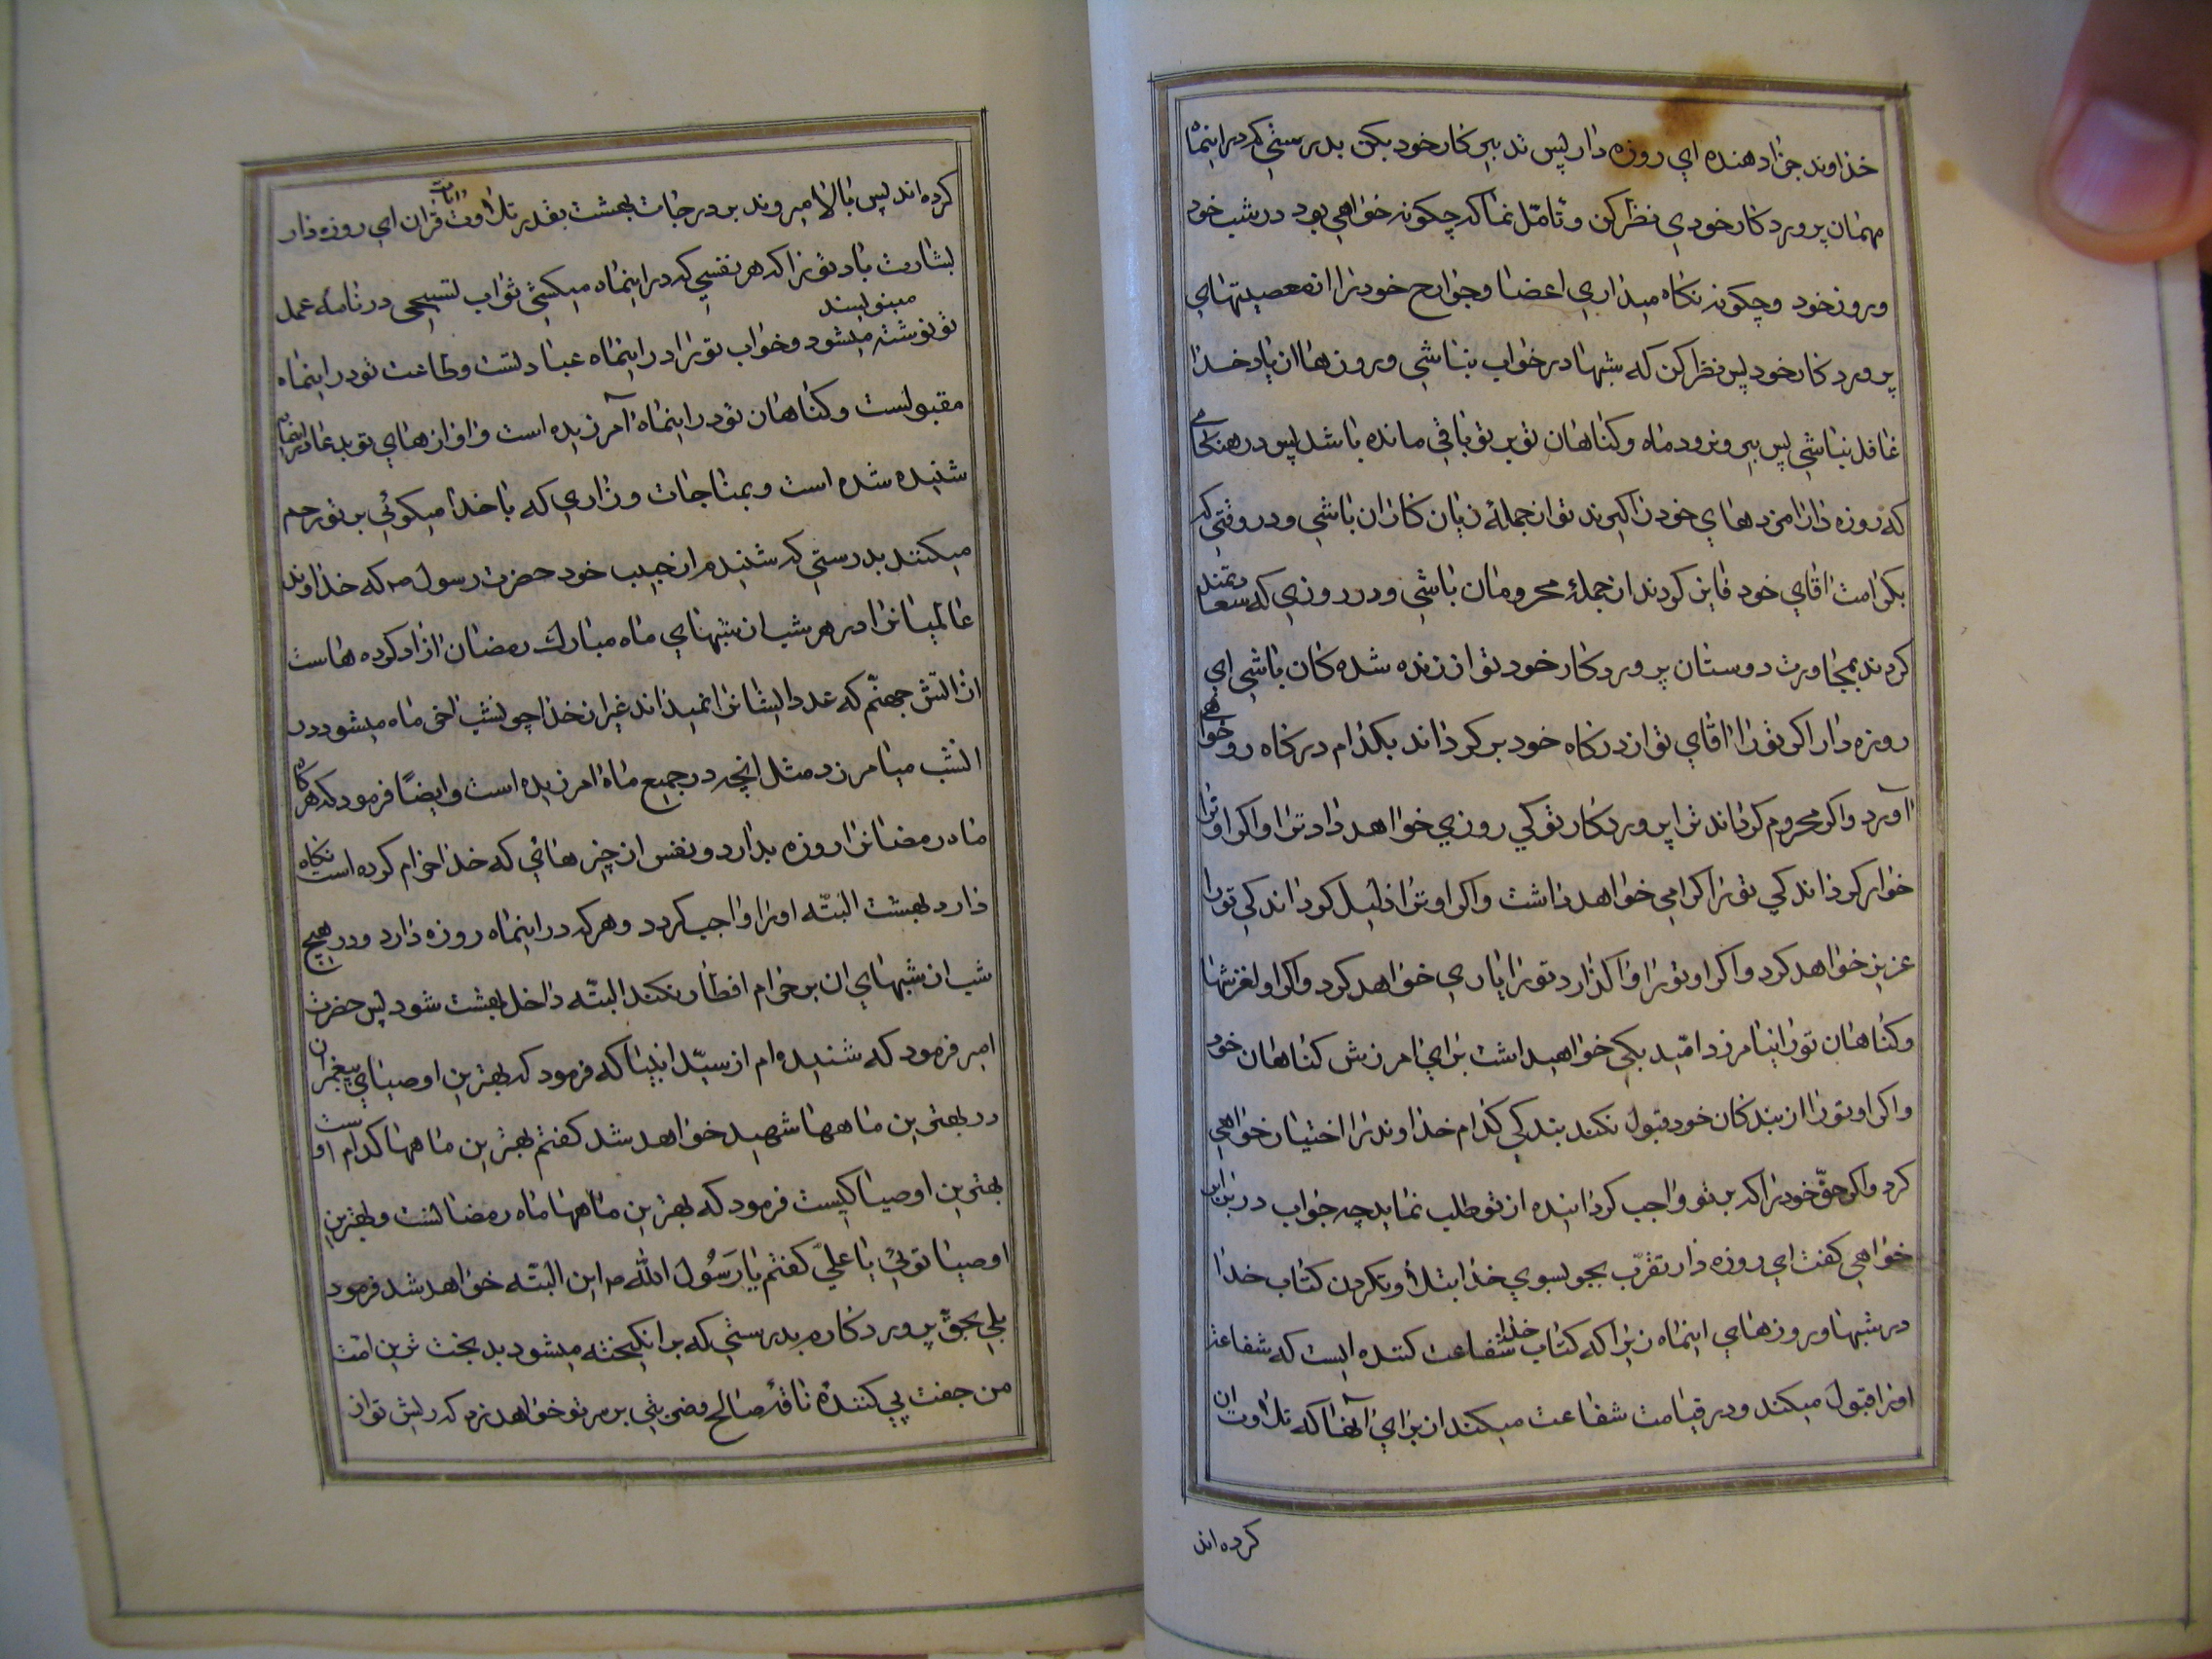 خداوند جزا دهنده اي روزه دار پس تدبير كار خود بكن بدرستي كه در اينماه
مهمان پروردكار خودي نظر كن و تامّل نما كه چكونه خواهي بود در شب خود
و روز خود و چكونه نكاه ميداري اعضا و جوارح خود را از معصيتهاي
پروردكار خود پس نظر كن كه شبها در خواب نباشي و روزها از ياد خدا
غافل نباشي پس بيرون رود ماه و كناهان تو بر تو باقي مانده باشد پس در هنكامي
كه روزه داران مزدهاي خود را كيرند تو از جملهٔ زيان كاران باشي و در وقتي كه
بكرامت اقاي خود فايز كردند از جملهٔ محرومان باشي و در روزي كه سعادتمند
كردند بمجاورت دوستان پروردكار خود تو از زنده شده كان باشي اي
روزه دار اكر تو را اقاي تو از دركاه خود بركرداند بكدام دركاه رو خواهي
آورد و اكر محروم كرداند ترا پروردكار تو كي روزي خواهد داد ترا و اكر او ترا
خوار كرداند كي تو را كرامي خواهد داشت و اكر او ترا ذليل كرداند كي تو را
عزيز خواهد كرد و اكر او تو را واكذارد تو را ياري خواهد كرد و اكر او لغزشها
و كناهان تو را نيامرزد اميّد بكي خواهيداشت براي امرزش كناهان خود
و اكر او تو را از بندكان خود قبول نكند بندكي كدام خداوند را اختيار خواهي
كرد و اكر حقّ خود را كه بر تو واجب كردانيده از تو طلب نمايد چه جواب در برابر
خواهي كفت اي روزه دار تقرّب بجو بسوي خدا بتلاوت كردن كتاب خدا
در شبها و روزهاي اينماه زيرا كه كتاب خدا شفاعت كننده ايست كه شفاعت
او را قبول ميكند و در قيامت شفاعت ميكند از براي آنها كه تلاوت ان
كرده اند
كرده اند پس بالا ميروند بر درجات بهشت بقدر تلاوت ايات قران اي روزه دار
بشارت باد تو را كه هر نفسي كه در اينماه ميكشي ثواب تسبيحي در نامهٔ عمل
مينويسند
تو نوشته ميشود و خواب تو را در اينماه عبادتست و طاعت تو در اينماه
مقبولست و كناهان تو در اينماه آمرزيده است و اوازهاي تو بدعا در اينماه
شنيده شده است و بمناجات و زاري كه با خدا ميكوئي بر تو رحم
ميكنند بدرستي كه شنيدم از حبيب خود حضرت رسول ص كه خداوند
عالميانرا در هر شب از شبهاي ماه مبارك رمضان ازاد كرده هاست
از اتش جهنّم كه عدد ايشانرا نميداند غير از خدا چو نشب اخر ماه ميشود در
انشب ميامرزد مثل انچه در جميع ماه امرزيده است و ايضاً فرمود كه هركاه
ماه رمضانرا روزه بدارد و نفس از چيزهائي كه خدا حرام كرده است نكاه
دارد بهشت البتّه او را واجب كردد و هر كه در اينماه روزه دارد و در هيچ
شب از شبهاي ان بر حرام افطار نكند البتّه داخل بهشت شود پس حضرت
امير فرمود كه شنيده ام از سيّد انبيا كه فرمود كه بهترين اوصياي پيغمبران
در بهترين ماهها شهيد خواهد شد كفتم بهترين ماهها كدام است و
بهترين اوصيا كيست فرمود كه بهترين ماهها ماه رمضانست و بهترين
اوصيا توئي يا عليّ كفتم يا رَسُول الله ص اين البتّه خواهد شد فرمود
بلي بحقّ پروردكارم بدرستي كه برانكيخته ميشود بدبخت ترين امّت
من جفت پي كنندهٔ ناقهٔ صالح و ضربتي بر سر تو خواهد زد كه ريش تو از